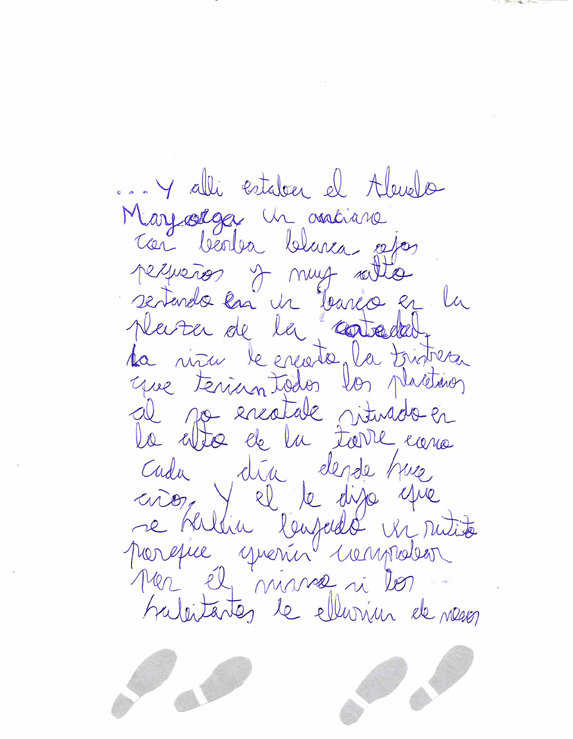 ...Y alli estaba el Abuelo
Mayorga un anciano
con barba blanca, ojos
pequeños y muy alto
sentando en un banco en la
plaza de la catedal,
La niña le la tristeza
que tenian todos los placetinos
al no situado en
lo alto de la torre como
cada día desde hace
años, Y el le dijo que
se habia bajado un ratito
porque queria comprobar
por él mismo si los
habitantes le de